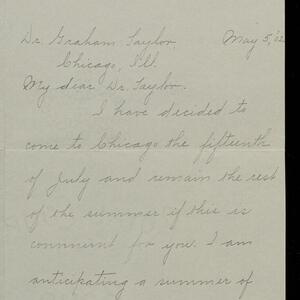 Dr. Graham Taylor, May 5, '02
Chicago, Ill.
My dear Dr. Taylor.
I have decided to
come to Chicago the fifteenth
of July and remain the rest
of the summer if this is
for you. I am
anticipating a summer of